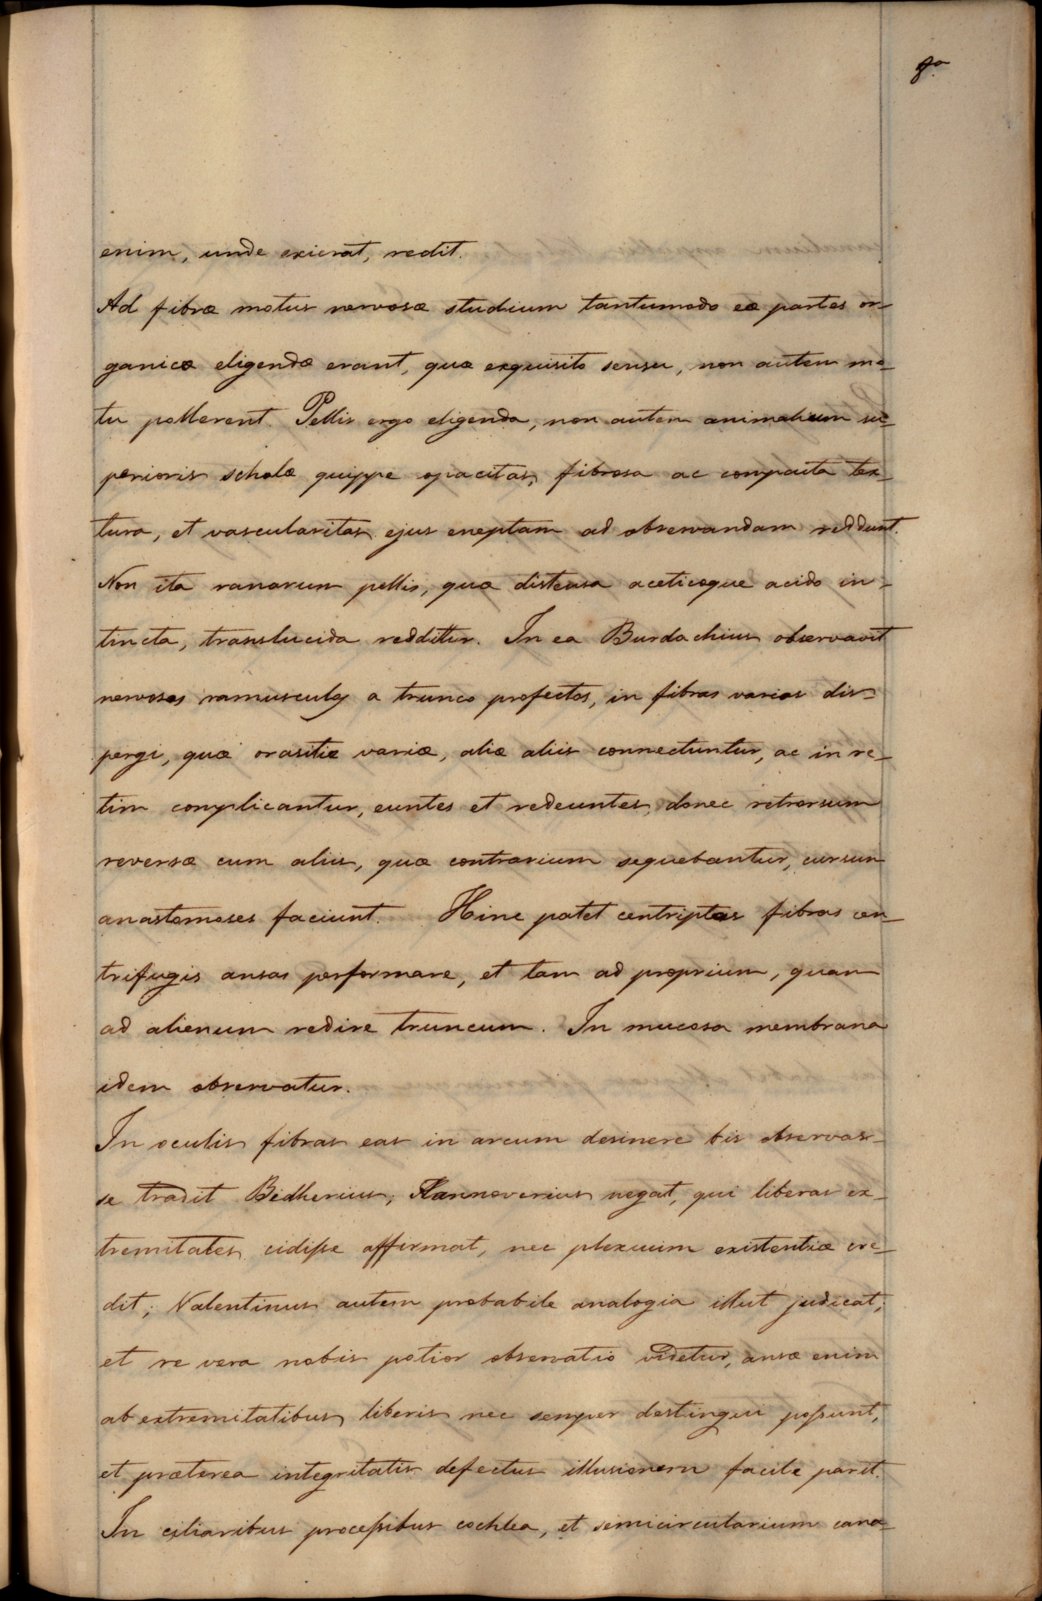 8.º
enim, unde exierat, redit.
Ad fibræ motus nervosæ studium tantumodo eæ partes or-
ganicæ eligendæ erant, quæ exquisito sensu, non autem mo-
tu pollerent. Pellis ergo eligenda, non autem animalium su-
perioris scholæ quippe opacitas, fibrosa ac compacta tex-
tura, et vascularitas ejus ineptam ad observandam reddunt.
Non ita ranarum pellis, quæ distensa aceticoque acido in-
tincta, translucida redditur. In ea Burdachius observavit
nervosos ramusculos a trunco profectos, in fibras varias dis-
pergi, quæ orasitiæ variæ, aliæ aliis connectuntur, ac in re-
tim complicantur, euntes et redeuntes, donec retrorsum
reversæ cum aliis, quæ contrarium sequebantur, cursum
anastomoses faciunt. Hinc patet centriptas fibras cen-
trifugis ansas performare, et tam ad proprium, quam
ad alienum redire truncum. In mucosa membrana
idem observatur.
In oculis fibras eas in arcum desinere bis observas-
se tradit Bidherius, Hannoverius negat, qui liberas ex-
tremitates cidisse affirmat, nec plexuum existentiæ cre-
dit; Valentinus autem probabile analogia illut judicat;
et re vera nobis potior observatio videtur, ansæ enim
ab extremitatibus liberis nec semper destingui possunt,
et præterea integritatis defectus illusionem facile parit.
In ciliaribus processibus cochlea, et semicircularium cana-